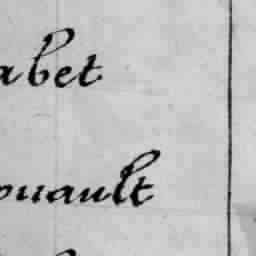 abet
ouault